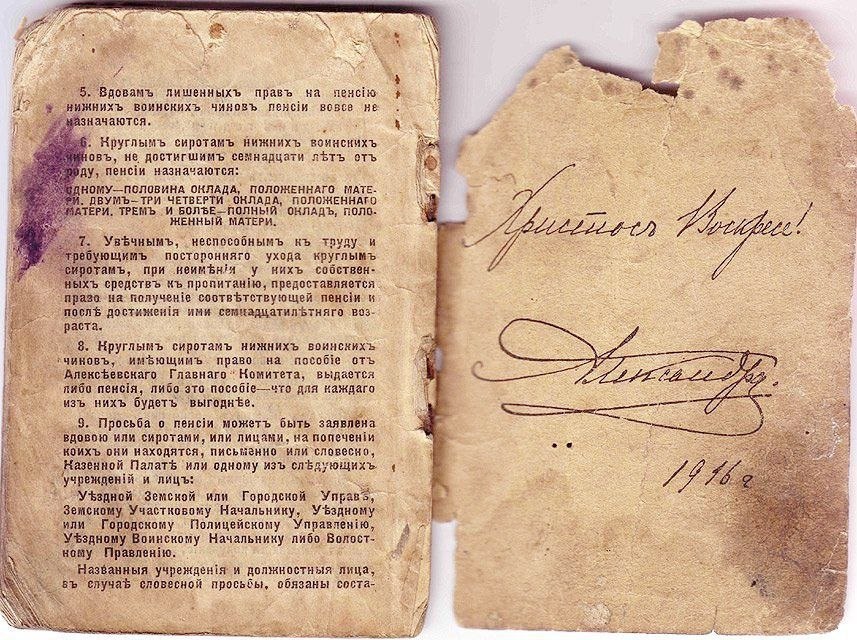 5. Вдовамъ лишеннымъ правъ на пенсію
нижнихъ воинскихъ чиновъ пенсіи вовсе не
назначаются.
6. Круглымъ сиротамъ нижнихъ воинскихъ
чиновъ, не достигшимъ семнадцати лѣтъ отъ
роду, пенсіи назначаются:
ОДНОМУ—ПОЛОВИНА ОКЛАДА, ПОЛОЖЕННАГО МАТЕ-
РИ, ДВУМЪ—ТРИ ЧЕТВЕРТИ ОКЛАДА, ПОЛОЖЕННАГО
МАТЕРИ, ТРЕМЪ И БОЛѢЕ—ПОЛНЫЙ ОКЛАДЪ, ПОЛО-
ЖЕННЫЙ МАТЕРИ.
7. Увѣчнымъ, неспособнымъ къ труду и
требующимъ посторонняго ухода круглымъ
сиротамъ, при неимѣніи у нихъ собствен-
ныхъ средствъ къ пропитанію, предоставляется
право на полученіе соотвѣтствующей пенсіи и
послѣ достиженія ими семнадцатилѣтняго воз-
раста.
8. Круглымъ сиротамъ нижнихъ воинскихъ
чиновъ, имѣющимъ право на пособіе отъ
Алексѣевскаго Главнаго Комитета, выдается
либо пенсія, либо это пособіе—что для каждаго
изъ нихъ будетъ выгоднѣе.
9. Просьба о пенсіи можетъ быть заявлена
вдовою или сиротами, или лицами, на попеченіи
коихъ они находятся, письменно или словесно,
Казенной Палатѣ или одному изъ слѣдующихъ
учрежденій и лицъ:
Уѣздной Земской или Городской Управѣ,
Земскому Участковому Начальнику, Уѣздному
или Городскому Полицейскому Управленію,
Уѣздному Воинскому Начальнику либо Волост-
ному Правленію.
Названныя учрежденія и должностныя лица,
въ случаѣ словесной просьбы, обязаны соста-
Христосъ Воскресе!
Александра.
1916 г